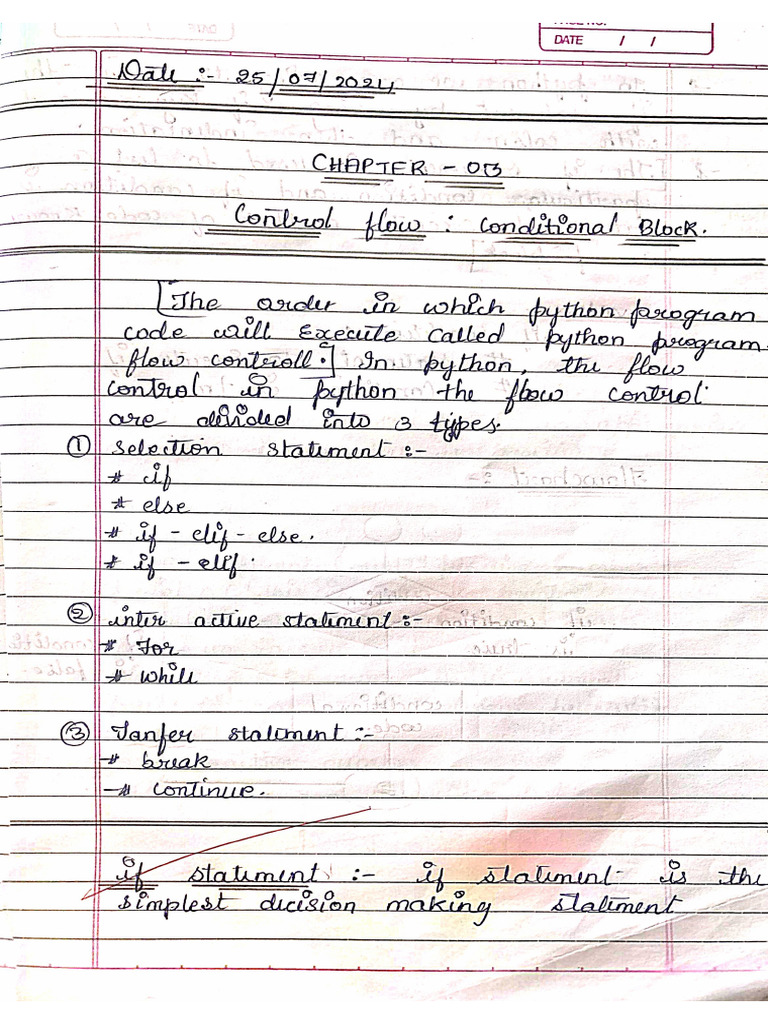 DATE / /
Date :- 25/07/2024
CHAPTER - 03
Control flow : Conditional Block.
[The order in which python program
code will execute called python program
flow controll.] In python, the flow
control in python the flow control
are divided into 3 types.
① selection statement :-
* if
* else
* if - elif - else.
* if - elif.
② inter active statement :-
* For
* while
③ Tanfer statement :-
* break
* continue.
if statement :- if statement is the
simplest decision making statement